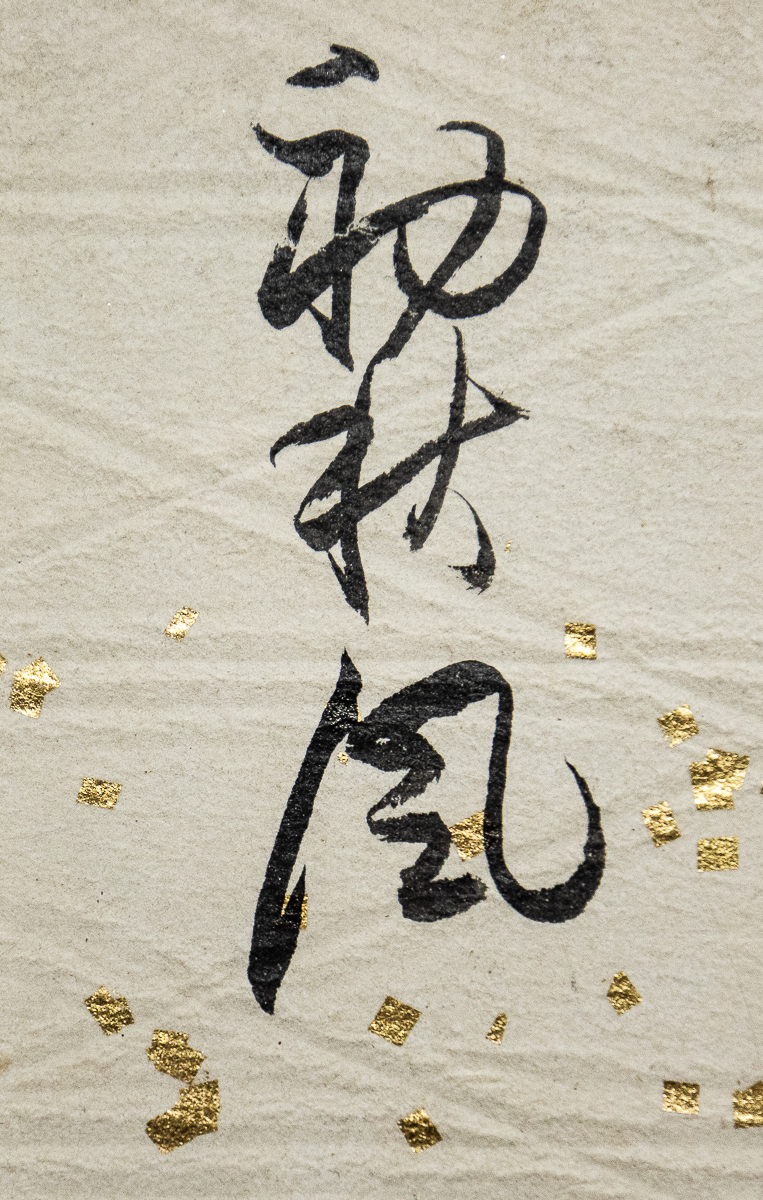 初秋風